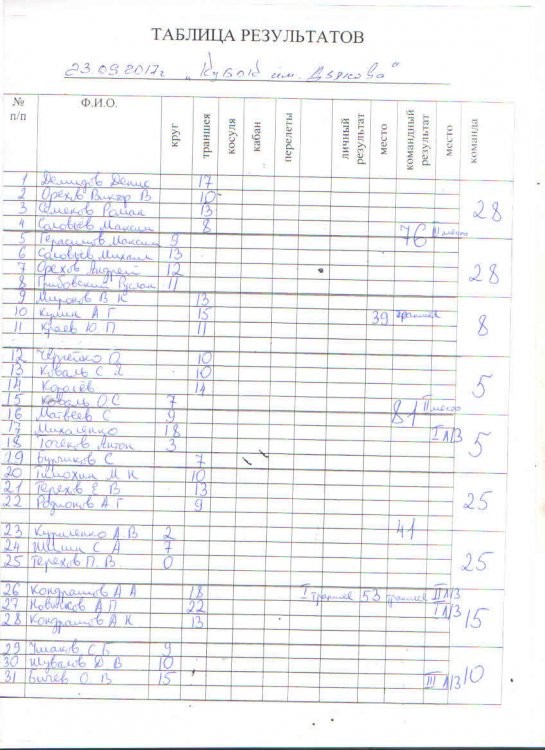 ТАБЛИЦА РЕЗУЛЬТАТОВ
23.09.2017г „Кубок им. Дьякова"
№ п/п Ф.И.О. круг траншея косуля кабан перелеты личный результат место командный результат место команда
1 Демидов Денис 17
2 Орехов Виктор В 10
3 Семеков Роман 13 28
4 Соловьев Максим 8
76 III место
5 Герасимов Максим 9
6 Соловьев Михаил 13
7 Орехов Андрей 12 28
8 Грибовский Руслан 11
9 Миронов В К 13
10 Кулик А Г 15 39 траншея
11 Краев Ю П 11 8
12 10
13 Коваль С 10
14 Королёв 14 5
15 Коваль О С 7 81 II место
16 Матвеев С 9
17 Михаленко 18 I Л/З
18 Точеков Антон 3 5
19 Бутчиков С 7
20 Тимохин М Н 10
21 Терехов Е В 13
22 Родионов А Г 9 25
23 Куриленко А В 2 41
24 С А 7
25 Терехов П. В. 0 25
26 Кондрашов А А 18 I траншея 53 траншея II Л/З
27 Новиков А П 22 I Л/З
28 Кондрашов А Н 13 15
29 Ушаков С Б 9
30 Шувалов Д В 10
31 Бычев О. В 15 III Л/З 10